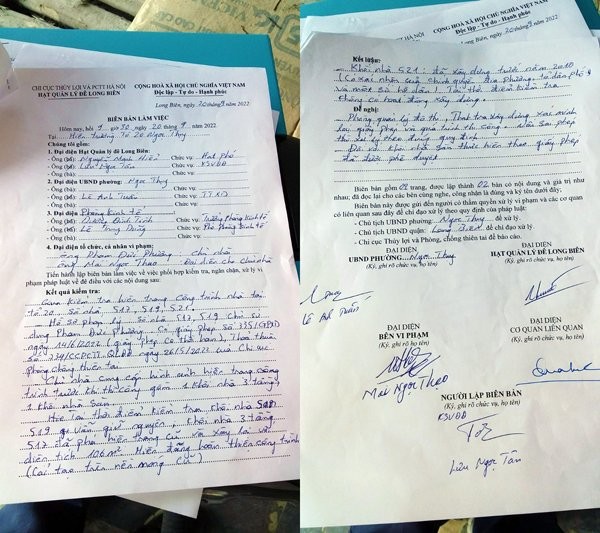 CHI CỤC THỦY LỢI VÀ PCTT HÀ NỘI
HẠT QUẢN LÝ ĐÊ LONG BIÊN
CỘNG HOÀ XÃ HỘI CHỦ NGHĨA VIỆT NAM
Độc lập - Tự do - Hạnh phúc
Long Biên, ngày 20 tháng 9 năm 2022
BIÊN BẢN LÀM VIỆC
Hôm nay, hồi 9 giờ 30 ngày 20 tháng 9 năm 2022
Tại: Hiện trường Tổ 20 Ngọc Thụy
Chúng tôi gồm:
1. Đại diện Hạt Quản lý đê Long Biên:
- Ông (bà) Nguyễn Mạnh Hiển Chức vụ: Hạt phó
- Ông (bà) Liêu Ngọc Tân Chức vụ: KSVĐĐ
2. Đại diện UBND phường: Ngọc Thụy
- Ông (bà): Lê Anh Tuấn Chức vụ: TTXD
- Ông (bà): Chức vụ:
3. Đại diện Phòng Kinh tế
- Ông (bà): Dương Đình Trình Chức vụ: Trưởng Phòng kinh tế
- Ông (bà): Lê Trung Dũng Chức vụ: Phó Phòng kinh tế
4. Đại diện tổ chức, cá nhân vi phạm:
Ông Phạm Đức Phương Chủ nhà
Ông Mai Ngọc Thao Đại diện cho Chủ nhà
Tiến hành lập biên bản làm việc về việc phối hợp kiểm tra, ngăn chặn, xử lý vi
phạm pháp luật về đê điều với các nội dung sau:
Kết quả kiểm tra:
Qua kiểm tra hiện trạng công trình nhà tại
tổ 20 Số nhà 517, 519, 521.
Hồ sơ pháp lý Số nhà 517, 519 Chủ sử
dụng Phạm Đức Phương Có giấy phép số 335/GPXD
ngày 14/6/2021 (giấy phép có thời hạn), Thỏa thuận
Số 334/CCPCTT-QLĐĐ ngày 26/5/2021 của Chi cục
phòng chống thiên tai
Chủ nhà cung cấp hình ảnh hiện trạng công
trình trước khi thi công gồm 1 khối nhà 3 tầng,
1 khối nhà Sàn.
Hiện tại thời điểm kiểm tra, Khối nhà Sàn
519 vẫn giữ nguyên, Khối nhà 3 tầng
517 đã phá hiện trạng cũ và xây lại với
diện tích 106 m². Hiện đang hoàn thiện công trình
(Cải tạo trên nền móng cũ)
PCTT HÀ NỘI
LONG BIÊN
CỘNG HOÀ XÃ HỘI CHỦ NGHĨA VIỆT NAM
Độc lập - Tự do - Hạnh phúc
Long Biên, ngày 20 tháng 9 năm 2022
Kết luận:
Khối nhà 521: đã xây dựng trước năm 2010
(Có xác nhận của chính quyền địa phương, tổ dân phố
và một số hộ dân). Tại thời điểm kiểm tra
không có hoạt động xây dựng.
Đề nghị:
Phòng quản lý đô thị, Thanh tra xây dựng xác minh
lại giấy phép và quá trình thi công. Nếu sai phép
thì xử lý theo thẩm quyền quy định
Đề nghị khối nhà Sàn thực hiện theo giấy phép
đã được phê duyệt.
Biên bản gồm 01 trang, được lập thành 02 bản có nội dung và giá trị như
nhau; đã đọc lại cho các bên cùng nghe, công nhận là đúng và ký tên dưới đây;
Biên bản này được gửi đến người có thẩm quyền xử lý vi phạm và các cơ quan
có liên quan sau đây để chỉ đạo xử lý theo quy định của pháp luật:
- Chủ tịch UBND phường: Ngọc Thụy để xử lý.
- Chủ tịch UBND quận: Long Biên để chỉ đạo xử lý.
- Chi cục Thủy lợi và Phòng, chống thiên tai để báo cáo.
ĐẠI DIỆN
UBND PHƯỜNG Ngọc Thụy
ĐẠI DIỆN
HẠT QUẢN LÝ ĐÊ LONG BIÊN
Lê Anh Tuấn
ĐẠI DIỆN
BÊN VI PHẠM
(Ký, ghi rõ chức vụ, họ tên)
ĐẠI DIỆN
CƠ QUAN LIÊN QUAN
(Ký, ghi rõ chức vụ, họ tên)
Mai Ngọc Thao
NGƯỜI LẬP BIÊN BẢN
(Ký, ghi rõ chức vụ, họ tên)
KSVĐĐ
Liêu Ngọc Tân